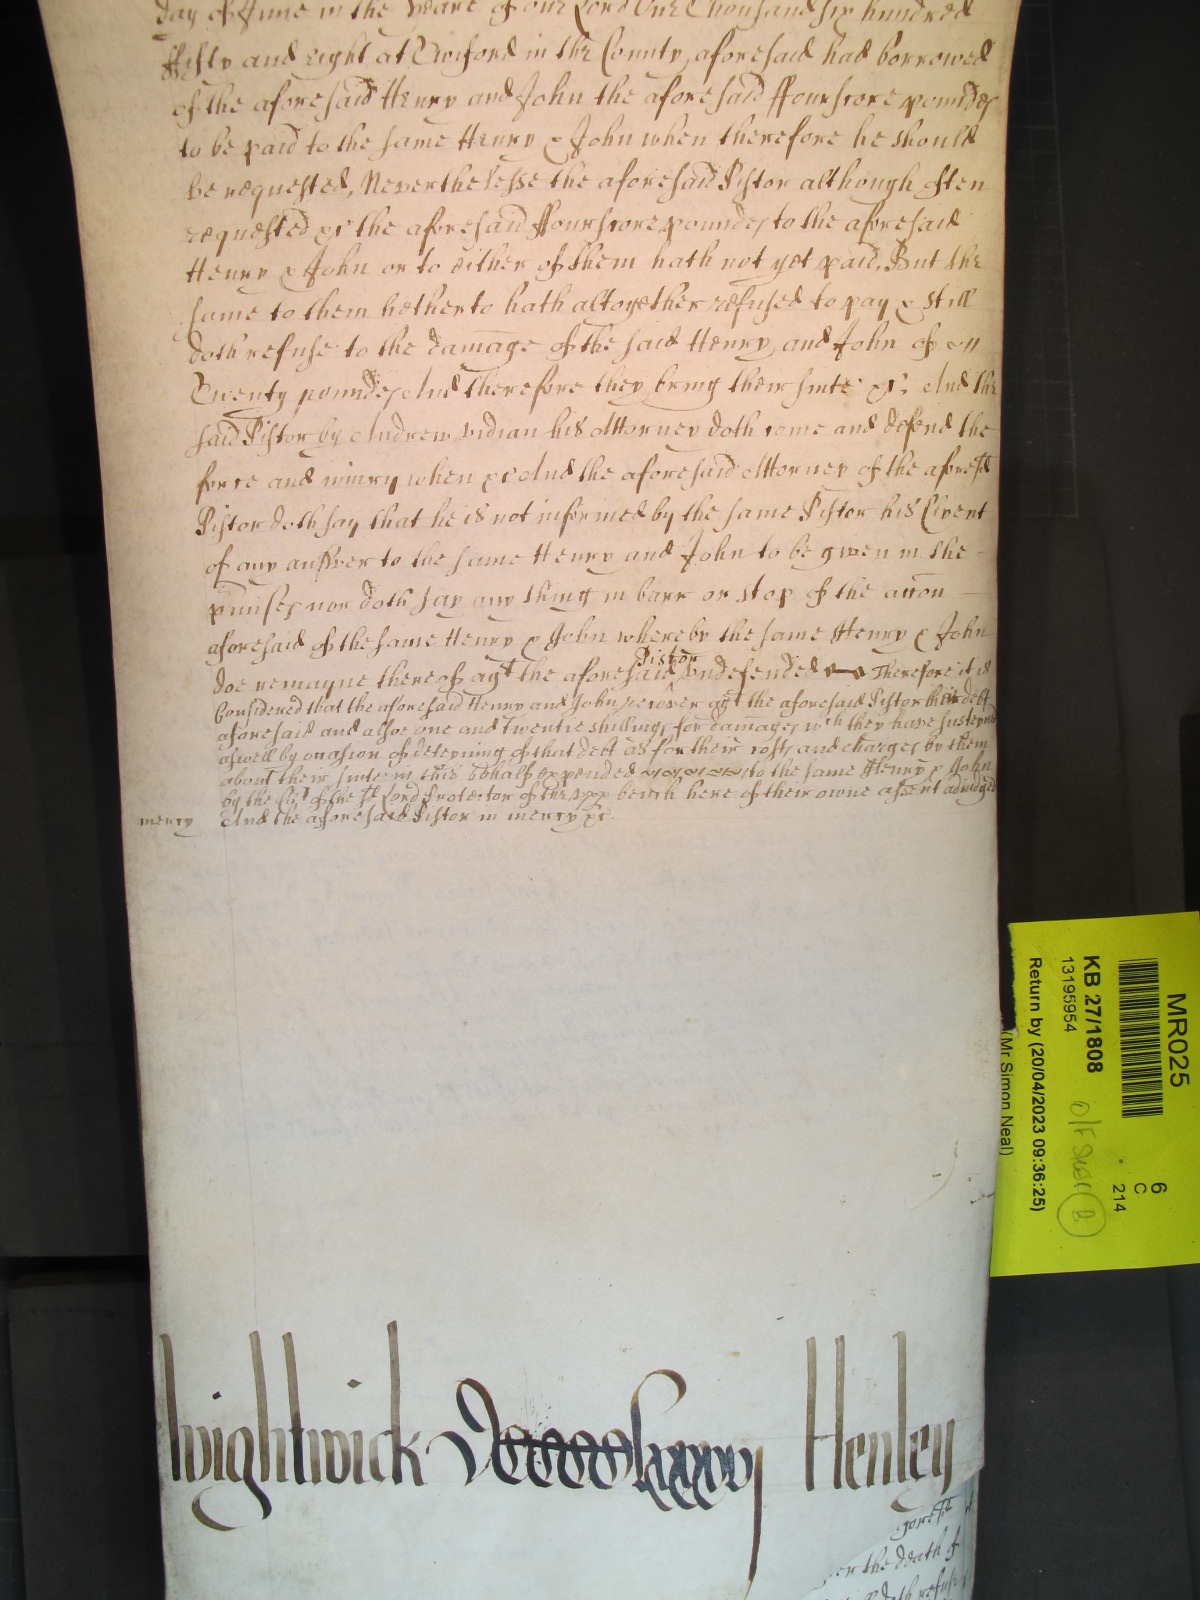 day of June in the yeare of our Lord One Thousand six hundred
ffifty and eight at Twiford in the County aforesaid had borrowed
of the aforesaid Henry and John the aforesaid ffourscore poundes
to be paid to the same Henry & John when therefore he should
be requested, Neverthelesse the aforesaid Pistor although often
requested &c the aforesaid ffourscore poundes to the aforesaid
Henry & John or to either of them hath not yet paid, But the
same to them hetherto hath altogether refused to pay & still
doth refuse to the damage of the said Henry and John of
Twenty poundes And therefore they bring their suite &c, And the
said Pistor by Andrew Vidian his Attorney doth come and defend the
force and iniury when &c And the aforesaid Attorney of the aforesd
Pistor doth say that he is not informed by the same Pistor his Clyent
of any answer to the same Henry and John to be given in the
pmisses nor doth say any thing in barr or stop of the accon
aforesaid of the same Henry & John whereby the same Henry & John
doe remayne thereof agt the aforesaid Pistor vndefended Therefore it is
Considered that the aforesaid Henry and John recover agt the aforesaid Pistor their debt
aforesaid and alsoe one and Twentie shillings for damages wch they have susteyned
aswell by occasion of deteyning of that debt as for their costs and charges by them
about their suite in this behalf expended to the same Henry & John
by the Cort of the sd Lord Protector of the vpp bench here of their owne assent adiudged
mercy And the aforesaid Pistor in mercy &c
Wightwick Henley
aforesd
the death of
doth refuse
MR025
KB 27/1808
13195954
Return by (20/04/2023 09:36:25)
(Mr Simon Neal)
6
C
214
B